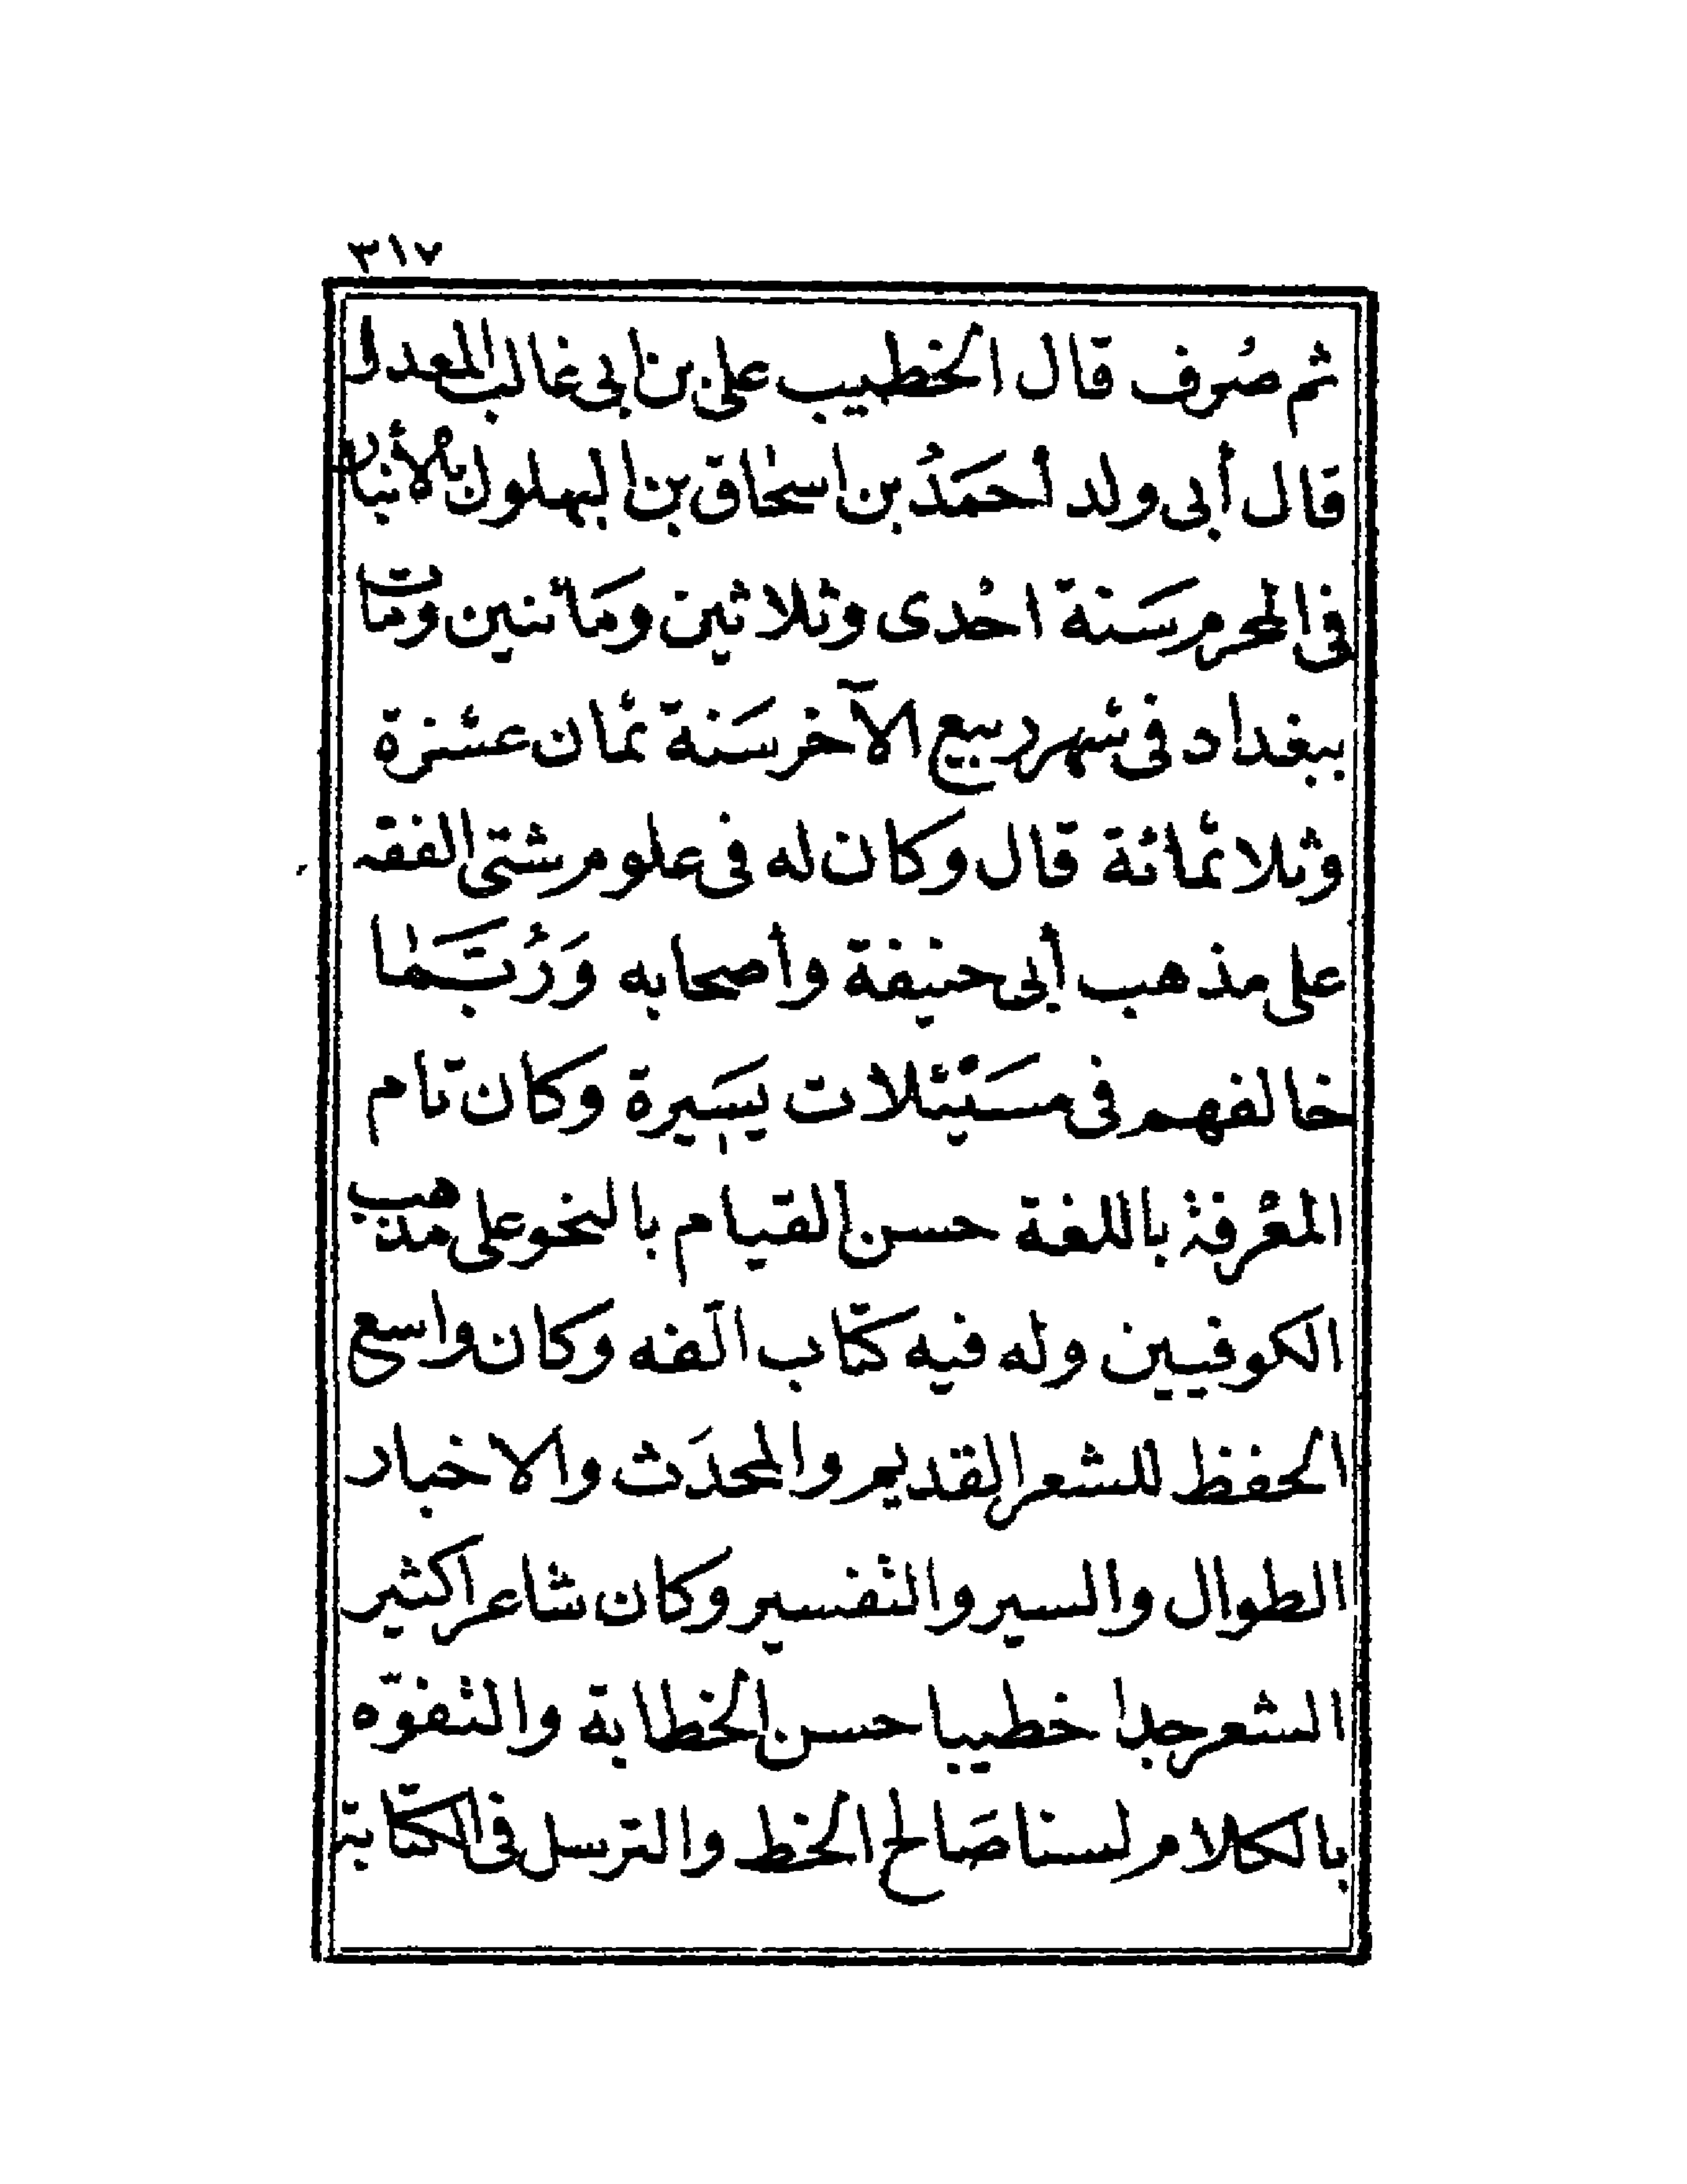 ٣١٧
ثم صُرف قال الخطيب على بن ابى غالب المعدل
قال أبى ولد أحمَدُ بن اسحاق بن البهلول بالأنبار
فى المحرم سَنة احْدى وثلاثين ومَائتين ومات
ببغداد فى شهر ربيع الآخر سَنة ثمان عشرة
وثلاثمائة قال وكان له فى علوم شتى الفقه
على مذهب أبى حنيفة وأصحابه وَرُبَّما
خالفهم فى مسَيْئلات يسَيرة وكان تام
المعْرفة باللغة حسن القيام بالنحو على مذهب
الكوفيين وله فيه كتاب الّفه وكان واسع
الحفظ للشعر القديم والمحدَث والاخبار
الطوال والسير والتفسير وكان شاعرا كثير
الشعر جدا خطيبا حسن الخطابة والتفوّه
بالكلام لسنا صَالح الخط والترسل فى الكتابة